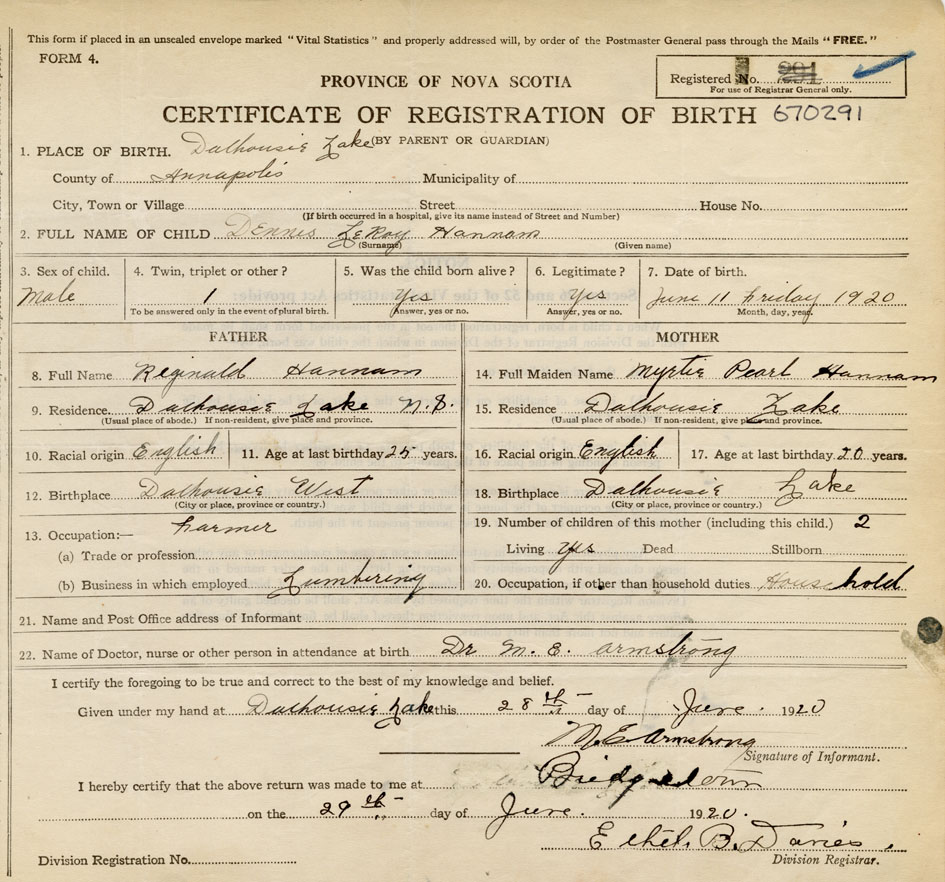 This form if placed in an unsealed envelope marked "Vital Statistics" and properly addressed will, by order of the Postmaster General pass through the Mails "FREE."
FORM 4.
Registered No. 291
For use of Registrar General only.
PROVINCE OF NOVA SCOTIA
CERTIFICATE OF REGISTRATION OF BIRTH 670291
(BY PARENT OR GUARDIAN)
1. PLACE OF BIRTH. Dalhousie Lake
County of Annapolis Municipality of
City, Town or Village Street House No.
(If birth occurred in a hospital, give its name instead of Street and Number)
2. FULL NAME OF CHILD Dennis LeRoy Hannam
(Surname) (Given name)
3. Sex of child. 4. Twin, triplet or other? 5. Was the child born alive? 6. Legitimate? 7. Date of birth.
Male 1 Yes Yes June 11 Friday 1920
To be answered only in the event of plural birth. Answer, yes or no. Answer, yes or no. Month, day, year.
FATHER MOTHER
8. Full Name Reginald Hannam 14. Full Maiden Name Myrtie Pearl Hannam
9. Residence. Dalhousie Lake N.S. 15. Residence Dalhousie Lake
(Usual place of abode.) If non-resident, give place and province. (Usual place of abode.) If non-resident, give place and province.
10. Racial origin English 11. Age at last birthday 25 years. 16. Racial origin English 17. Age at last birthday 20 years.
12. Birthplace Dalhousie West 18. Birthplace Dalhousie Lake
(City or place, province or country.) (City or place, province or country.)
13. Occupation:— Farmer 19. Number of children of this mother (including this child.) 2
(a) Trade or profession Living yes Dead Stillborn
(b) Business in which employed Lumbering 20. Occupation, if other than household duties Household
21. Name and Post Office address of Informant
22. Name of Doctor, nurse or other person in attendance at birth Dr M. E. Armstrong
I certify the foregoing to be true and correct to the best of my knowledge and belief.
Given under my hand at Dalhousie Lake this 28th day of June. 1920
M. E. Armstrong
Signature of Informant.
I hereby certify that the above return was made to me at Bridgetown
on the 29th day of June. 1920.
Ethel B. Davies.
Division Registration No. Division Registrar.